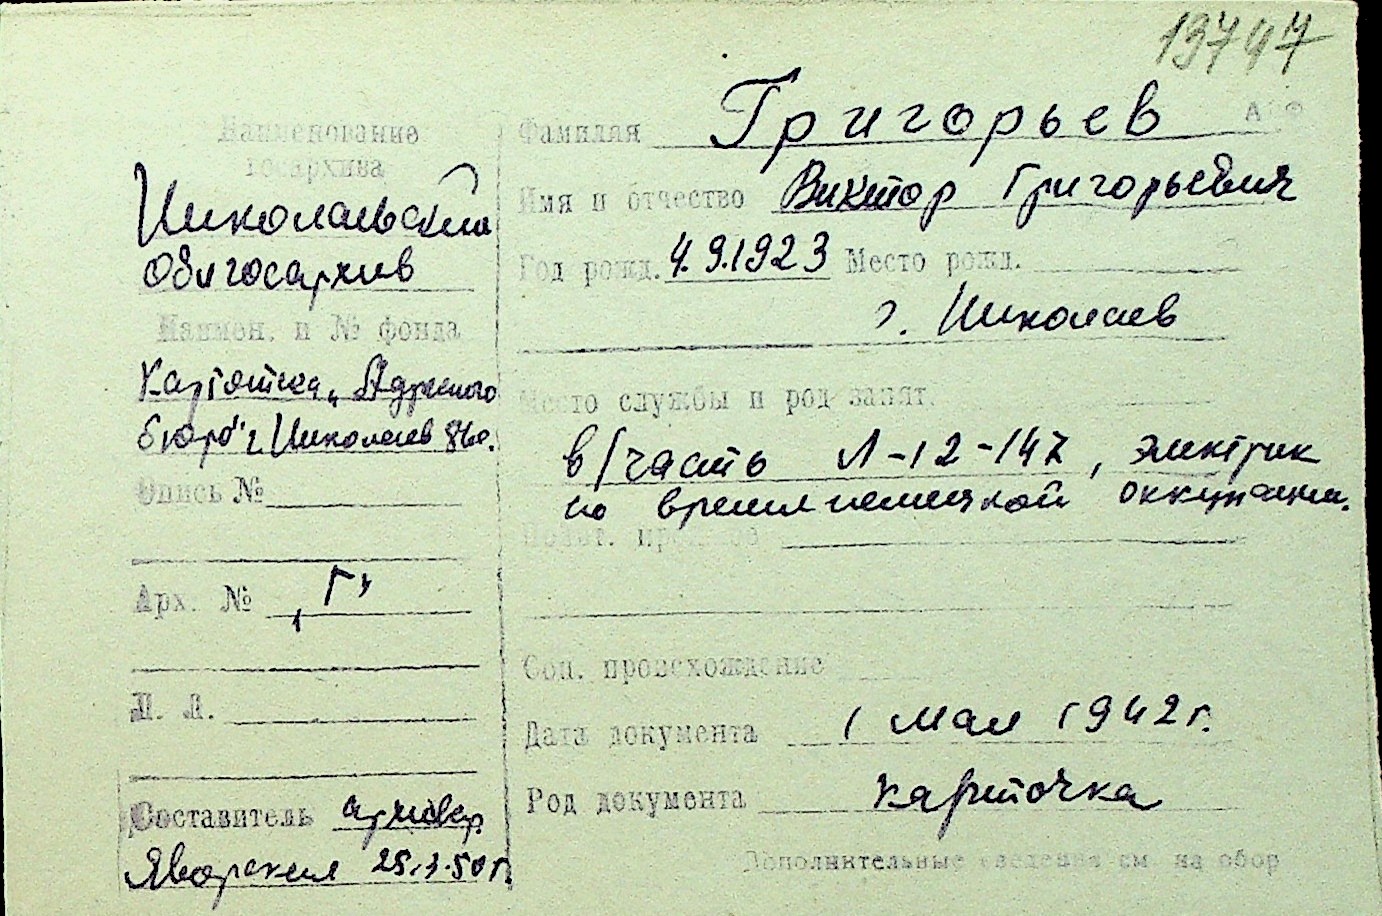 13747
Наименование
госархива
Николаевский
Облгосархив
Наимен. и № фонда
Картотека „Адресного
бюро" г. Николаев
Опись №
Арх. № „Г"
Л. Л.
Составитель архивар
Яворская 25.1.50 г.
Фамилия Григорьев
Имя и отчество Виктор Григорьевич
Год рожд. 4.9.1923 Место рожд.
г. Николаев
Место службы и род занят.
в/часть Л-12-147, электрик
во время немецкой оккупации.
Соц. происхождение
Дата документа 1 мая 1942 г.
Род документа карточка
Дополнительные сведения см на обор